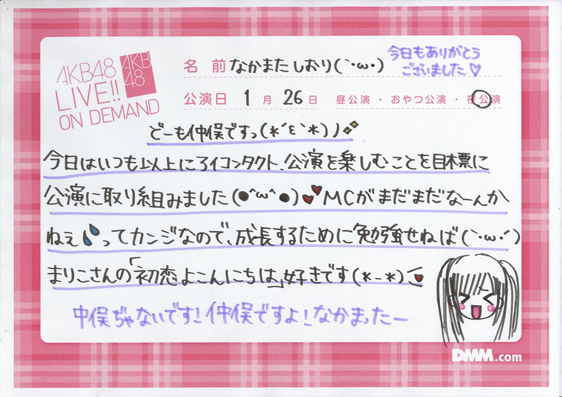 AKB48
LIVE!!
ON DEMAND
AKB
48
名 前 なかまたしおり(｀･ω･)
今日もありがとう
ございました♡
公演日 1 月 26 日 昼公演・おやつ公演・夜公演
どーも仲俣ですっ(*´ε`*)ﾉ
今日はいつも以上にアイコンタクト、公演を楽しむことを目標に
公演に取り組みました(●^ω^●)♥MCがまだまだなーんか
ねぇ💧ってカンジなので、成長するために勉強せねば(｀･ω･´)
まりこさんの「初恋よこんにちは」好きです(*-*)
中俣ぢゃないです!仲俣ですよ!なかまったー
DMM.com